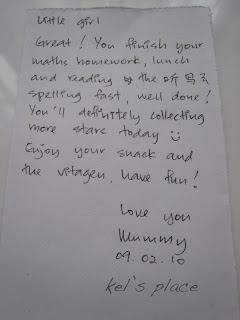 Little girl
Great! You finish your
maths homework, lunch
and reading & the 听写
spelling fast, well done!
You'll definitely collecting
more stars today
Enjoy your snack and
the vitagen, have fun!
Love you
Mummy
09.02.10
kel's place